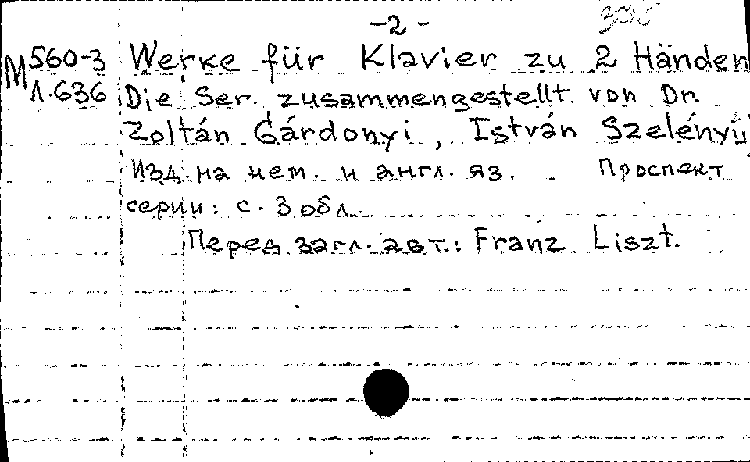 -2-
М 560-3 Werke für Klavier zu 2 Händen
1.636 Die Ser. zusammengestellt von Dr.
Zoltán Gárdonyi, István Szelényi
Изд. на нем. и англ. яз. - Проспект
серии: с. 3 обл.
Перед загл. авт.: Franz Liszt.